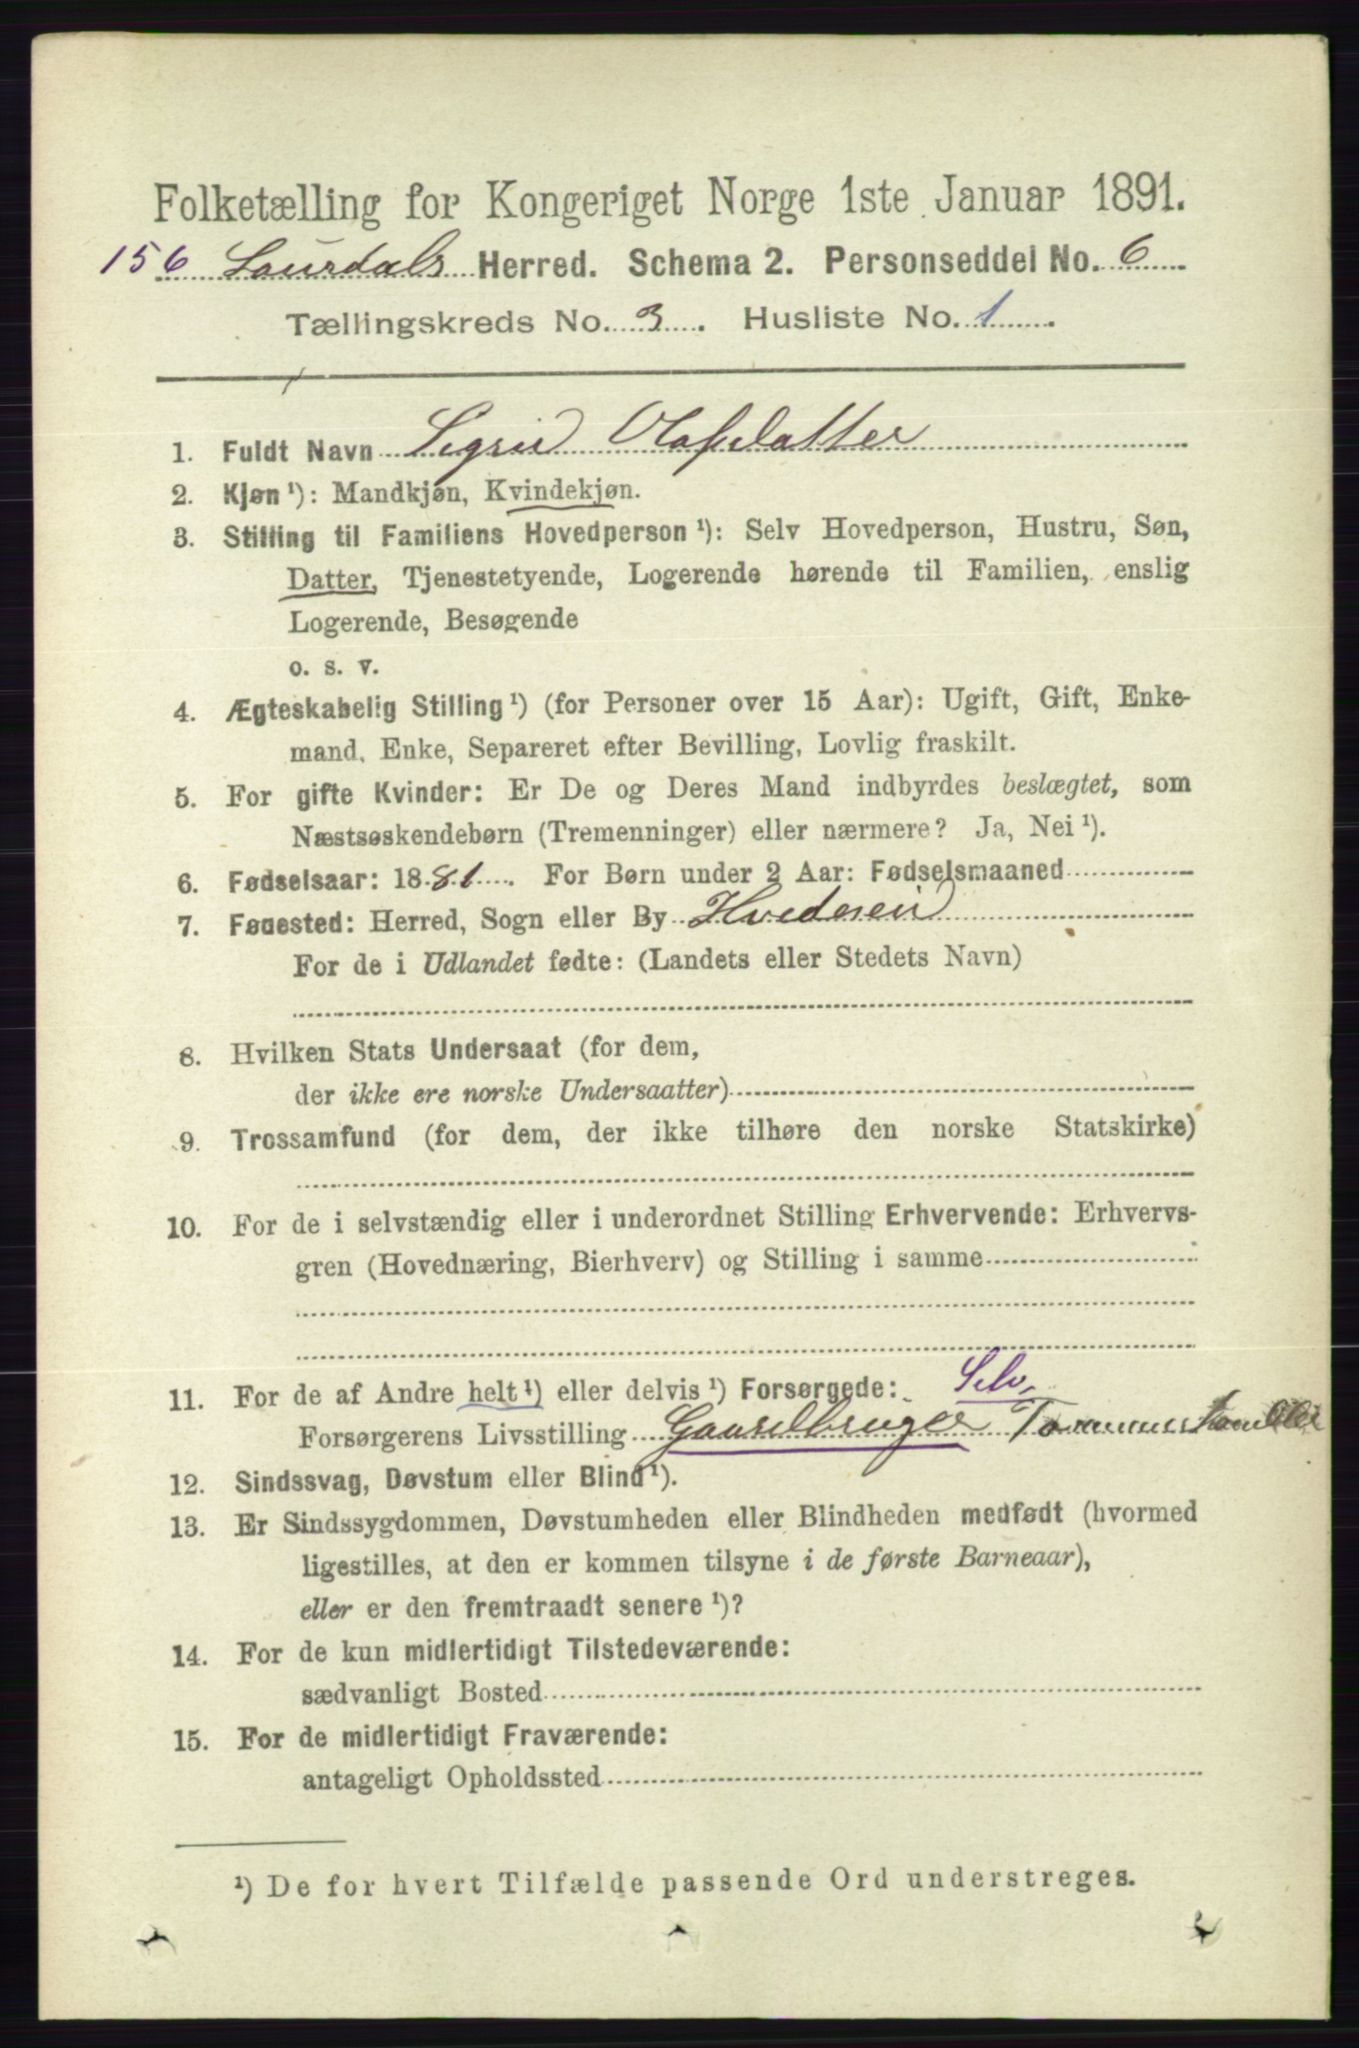 Folketælling for Kongeriget Norge 1ste Januar 1891.
156 Laurdals Herred. Schema 2. Personseddel No. 6
Tællingskreds No. 3. Husliste No. 1.
1. Fuldt Navn Sigrid Olafsdatter
2. Kjøn ¹): Mandkjøn, Kvindekjøn.
3. Stilling til Familiens Hovedperson ¹): Selv Hovedperson, Hustru, Søn,
Datter, Tjenestetyende, Logerende hørende til Familien, enslig
Logerende, Besøgende
o. s. v.
4. Ægteskabelig Stilling ¹) (for Personer over 15 Aar): Ugift, Gift, Enke-
mand, Enke, Separeret efter Bevilling, Lovlig fraskilt.
5. For gifte Kvinder: Er De og Deres Mand indbyrdes beslægtet, som
Næstsøskendebørn (Tremenninger) eller nærmere? Ja, Nei ¹).
6. Fødselsaar: 1881. For Børn under 2 Aar: Fødselsmaaned
7. Fødested: Herred, Sogn eller By Hvideseid
For de i Udlandet fødte: (Landets eller Stedets Navn)
8. Hvilken Stats Undersaat (for dem,
der ikke ere norske Undersaatter)
9. Trossamfund (for dem, der ikke tilhøre den norske Statskirke)
10. For de i selvstændig eller i underordnet Stilling Erhvervende: Erhvervs-
gren (Hovednæring, Bierhverv) og Stilling i samme
11. For de af Andre helt ¹) eller delvis ¹) Forsørgede: Selv.
Forsørgerens Livsstilling Gaardbruger
12. Sindssvag, Døvstum eller Blind ¹).
13. Er Sindssygdommen, Døvstumheden eller Blindheden medfødt (hvormed
ligestilles, at den er kommen tilsyne i de første Barneaar),
eller er den fremtraadt senere ¹)?
14. For de kun midlertidigt Tilstedeværende:
sædvanligt Bosted
15. For de midlertidigt Fraværende:
antageligt Opholdssted
¹) De for hvert Tilfælde passende Ord understreges.